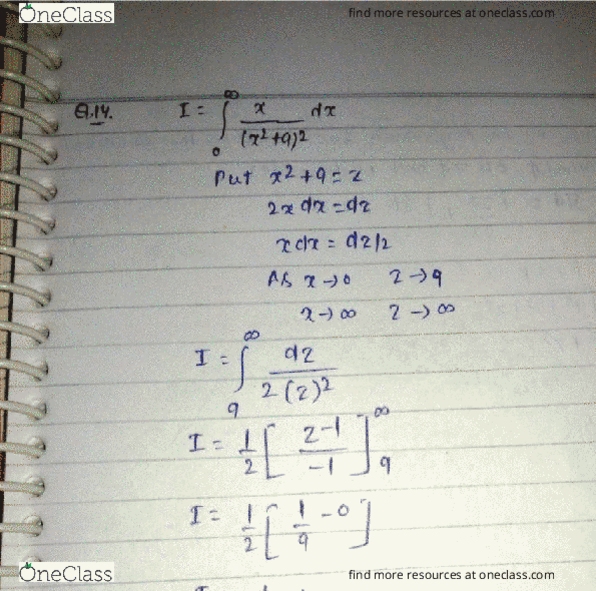 OneClass find more resources at oneclass.com
Q.14. I = ∫₀^∞ x/(x²+9)² dx
Put x²+9=z
2x dx = dz
x dx = dz/2
As x→0 z→9
x→∞ z→∞
I = ∫₉^∞ dz/2(z)²
I = 1/2 [ z⁻¹/-1 ]₉^∞
I = 1/2 [ 1/9 - 0 ]
OneClass find more resources at oneclass.com